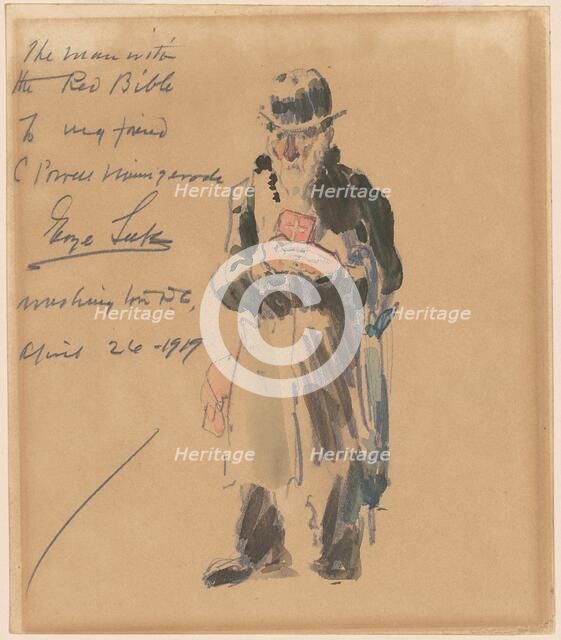 The man with
the Red Bible
To my friend
C Powell Minnigerode
George Luks
Washington D.C,
April 26 - 1919
Heritage Heritage
Heritage Heritage
Heritage Heritage